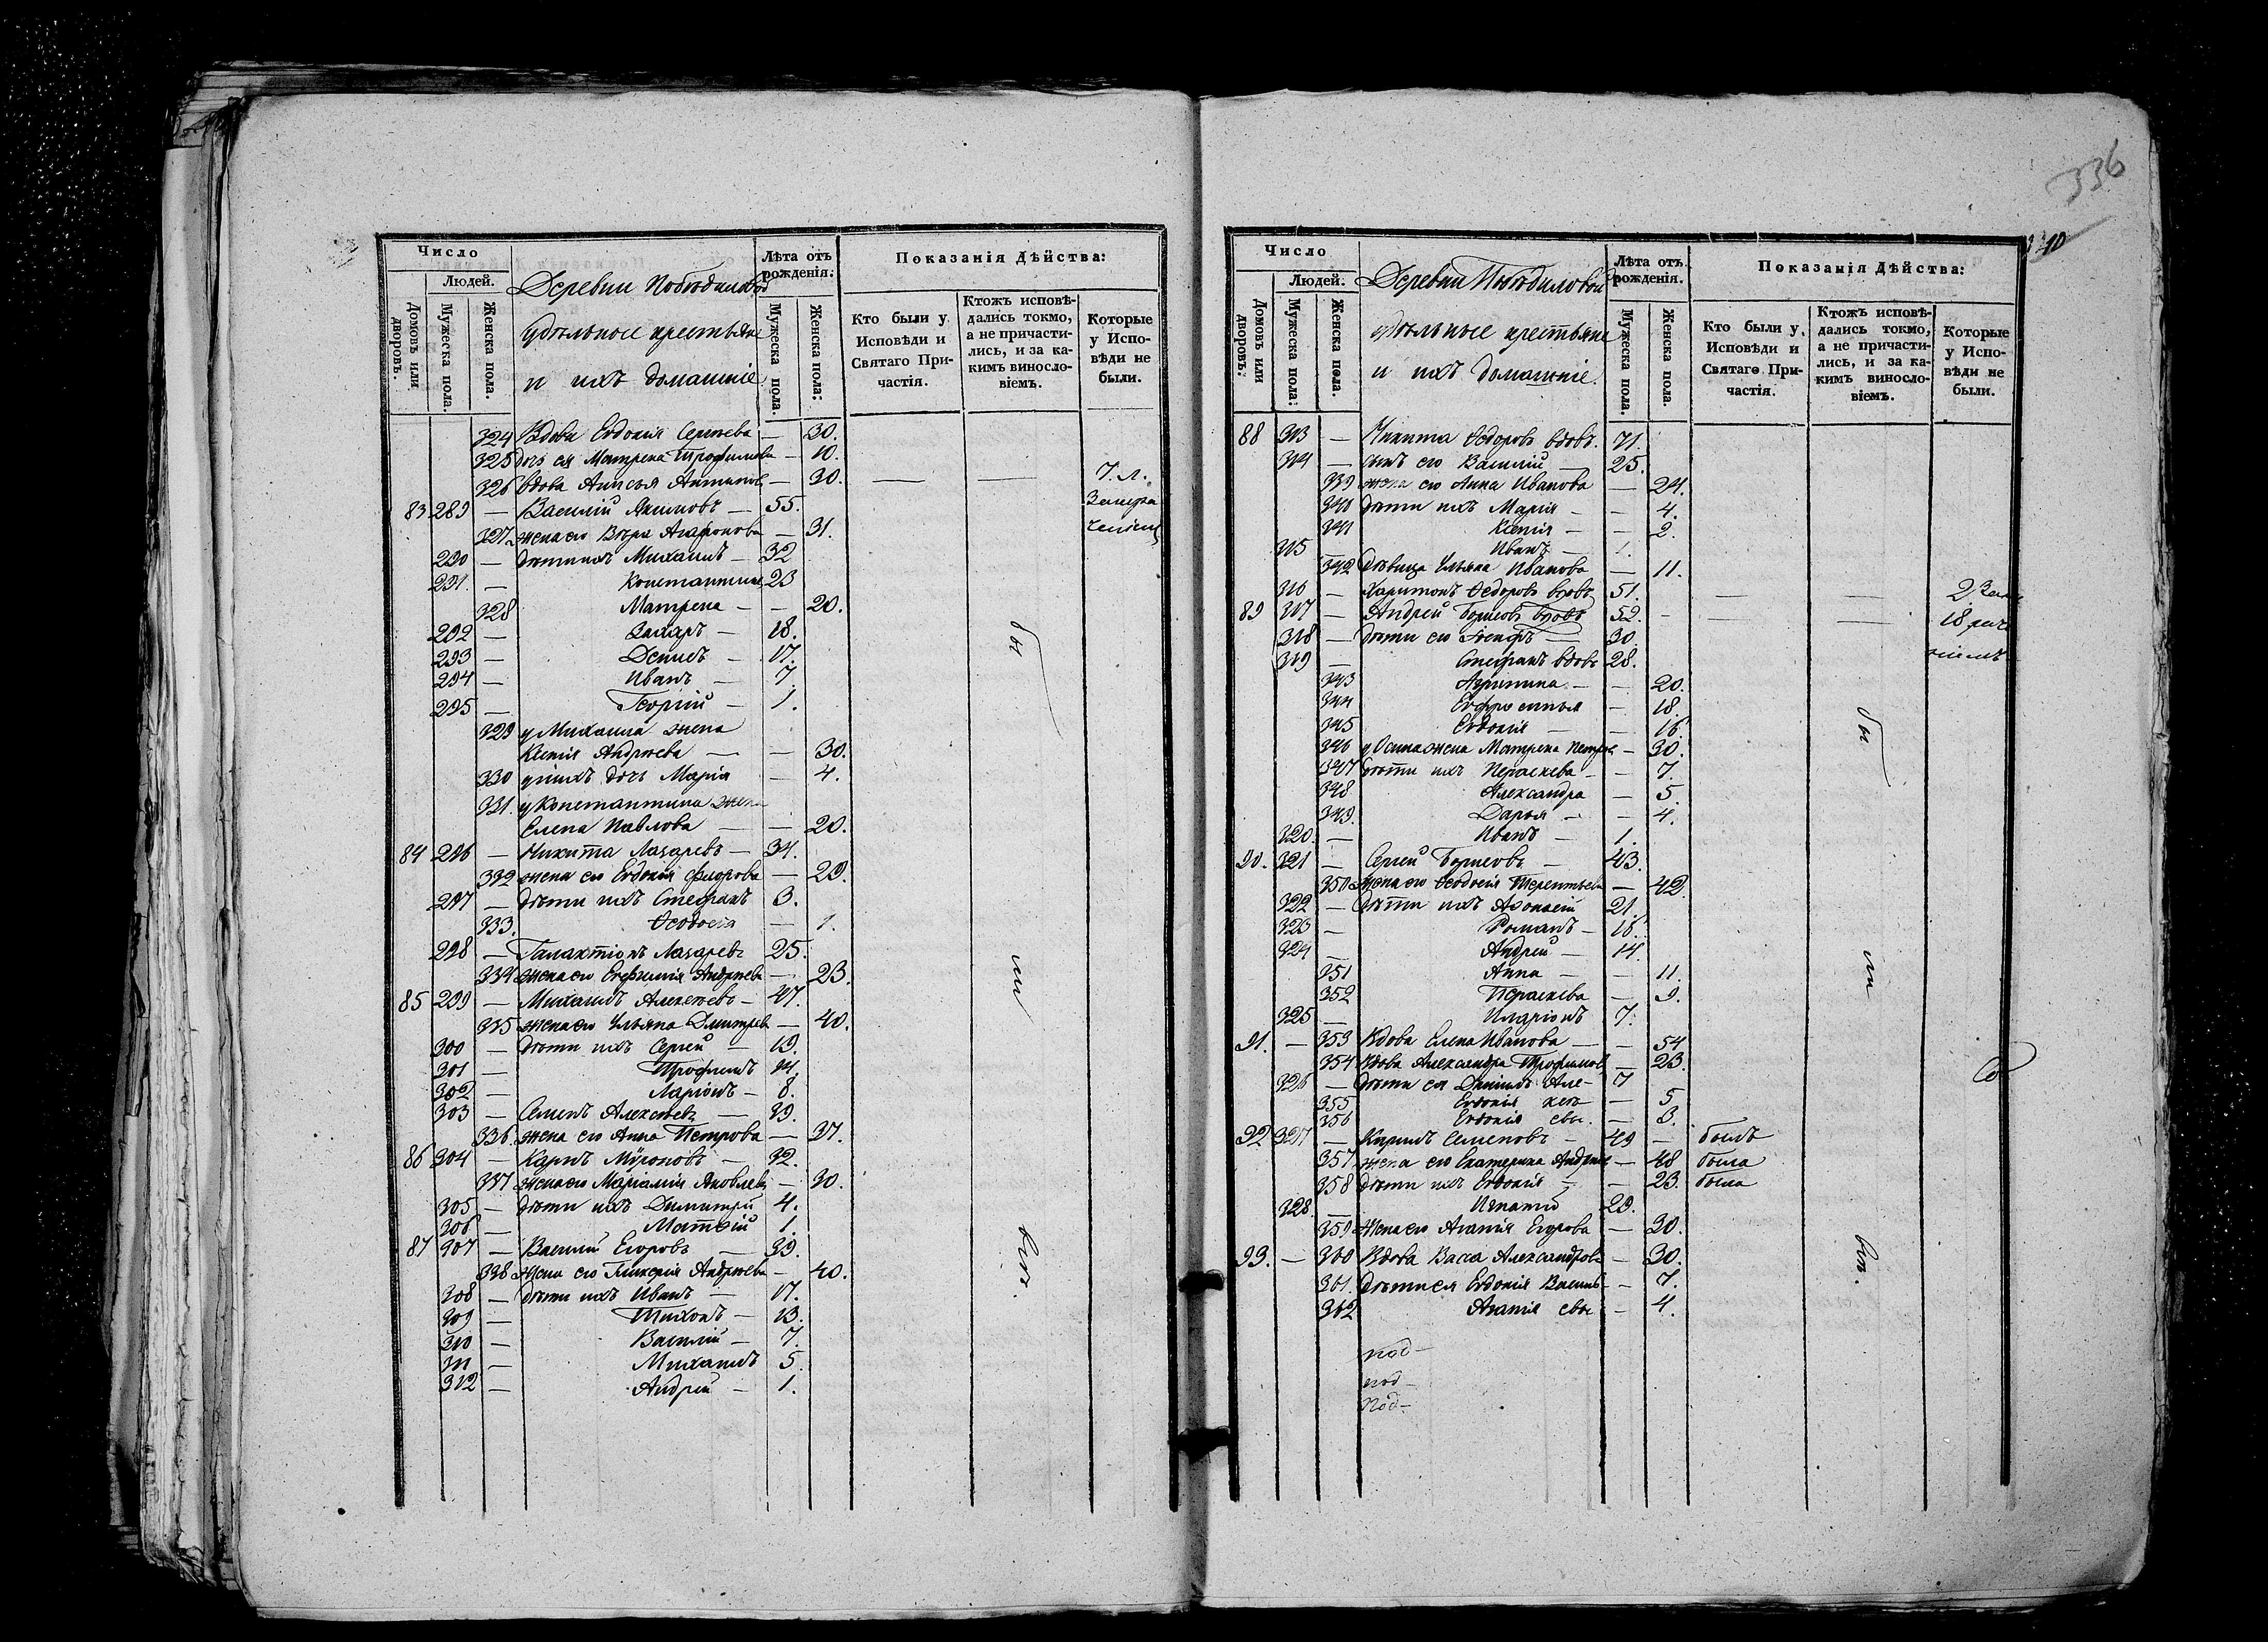 Число
Людей.
Домовъ или дворовъ.
Мужеска пола.
Женска пола.
Деревни Побѣдиловой
удѣльные крестьяне
и ихъ домашніе
Лѣта отъ рожденія.
Мужеска пола.
Женска пола.
Показанія Дѣйства:
Кто были у Исповѣди и Святаго Причастія.
Ктожъ исповѣдались токмо, а не причастились, и за какимъ винословіемъ.
Которые у Исповѣди не были.
324 Вдова Евдокія Сергѣева — 30.
325 дочь ея Матрена Трофимова — 10.
326 вдова Анисья Антипов — 30. — — 7. л.
83 289 — Василій Якимовъ — 55.
327 жена его Вѣра Агафонова — 31.
290 — дѣти ихъ Михаилъ — 32
291. — Константинъ 23
328 Матрена — — 20.
292 — Захаръ — 18.
293 — Денисъ — 17.
294 — Иванъ — 7
295 — Георгій — 1.
329 у Михаила жена
Ксенія Андрѣева — — 30.
330 у нихъ дочь Марія — 4.
331. у Константина жена
Елена Павлова — — 20.
84 296 — Никита Лазаревъ — 34.
332 жена его Евдокія Флорова — 29.
297 — дѣти ихъ Стефанъ 3.
333. Ѳеодосія — 1.
298 — Галактіонъ Лазаревъ 25.
334 жена его Евфимія Андрѣева — 23.
85 299 — Михаилъ Алексѣевъ — 47.
335 жена его Ульяна Дмитрев — 40.
300 — дѣти ихъ Сергей — 19.
301 — Трофимъ 14.
302 — Ларіонъ — 8.
303 — Семенъ Алексѣевъ — 39.
336. жена его Анна Петрова — 37.
86 304 — Карпъ Мѵроновъ — 32.
337 жена его Маріамія Яковлев — 30.
305 — дѣти ихъ Димитрій 4.
306 — Матѳій 1.
87 307 — Василій Егоровъ — 39.
338 жена его Гликерія Андрѣева — 40.
308 — дѣти ихъ Иванъ — 17.
309 — Тихонъ — 13.
310 — Василій — 7.
311 — Михаилъ 5.
312 — Андрей — 1.
бы
ли
всѣ.
336
Число
Людей.
Домовъ или дворовъ.
Мужеска пола.
Женска пола.
Деревни Побѣдиловой
удѣльные крестьяне
и ихъ домашніе.
Лѣта отъ рожденія.
Мужеска пола.
Женска пола.
Показанія Дѣйства:
Кто были у Исповѣди и Святаго Причастія.
Ктожъ исповѣдались токмо, а не причастились, и за какимъ винословіемъ.
Которые у Исповѣди не были.
88 313 — Никита Ѳедоровъ вдовъ. 71.
314 — сынъ его Василій — 25.
339 жена его Анна Иванова — 24.
340 дѣти ихъ Марія — — 4.
341 Ксенія — — 2.
315 — Иванъ — 1.
342 дѣвица Ульяна Иванова — 11.
316 — Харитонъ Ѳедоровъ вдовъ 51.
89 317 — Андрей Борисовъ вдовъ 52. — — —
318 — дѣти его Іосифъ — 30.
319 — Стефанъ вдовъ 28.
343 Агрипина — — 20.
344 Евфросинья — 18.
345 Евдокія — — 16.
346 у Осипа жена Матрена Петров — 30.
347 дѣти ихъ Пераскева — — 7.
348 Александра — 5.
349. Дарья — — 4.
320. — Иванъ — 1.
90. 321 — Сергей Борисовъ — 43.
350 жена его Ѳеодосія Терентьева — 42.
322 — дѣти ихъ Аѳонасій 21.
323 — Романъ — 16.
324 — Андрей — 14.
351 Анна — — 11.
352 Пераскева — 9.
325 — Иларіонъ 7.
91. — 353 Вдова Елена Иванова — — 54
354 вдова Александра Трофимов — 23.
326 — дѣти ея Даніилъ Але- 7
355 Евдокія ксѣ- — 5
356 Евдокія евы. — 3.
92 327 — Кирилъ Семеновъ — 49 — былъ
357 жена его Екатерина Андрѣев — 48 была
358 дѣти ихъ Евдокія — — 23. была
328. — Игнатій 29.
359 жена его Агапія Егорова — 30.
93. — 360 Вдова Васса Александрова — 30.
361. дѣти ея Евдокія Василь- — 7.
362 Агапія евы — 4.
бы
ли
всѣ.
под—
под—
под—